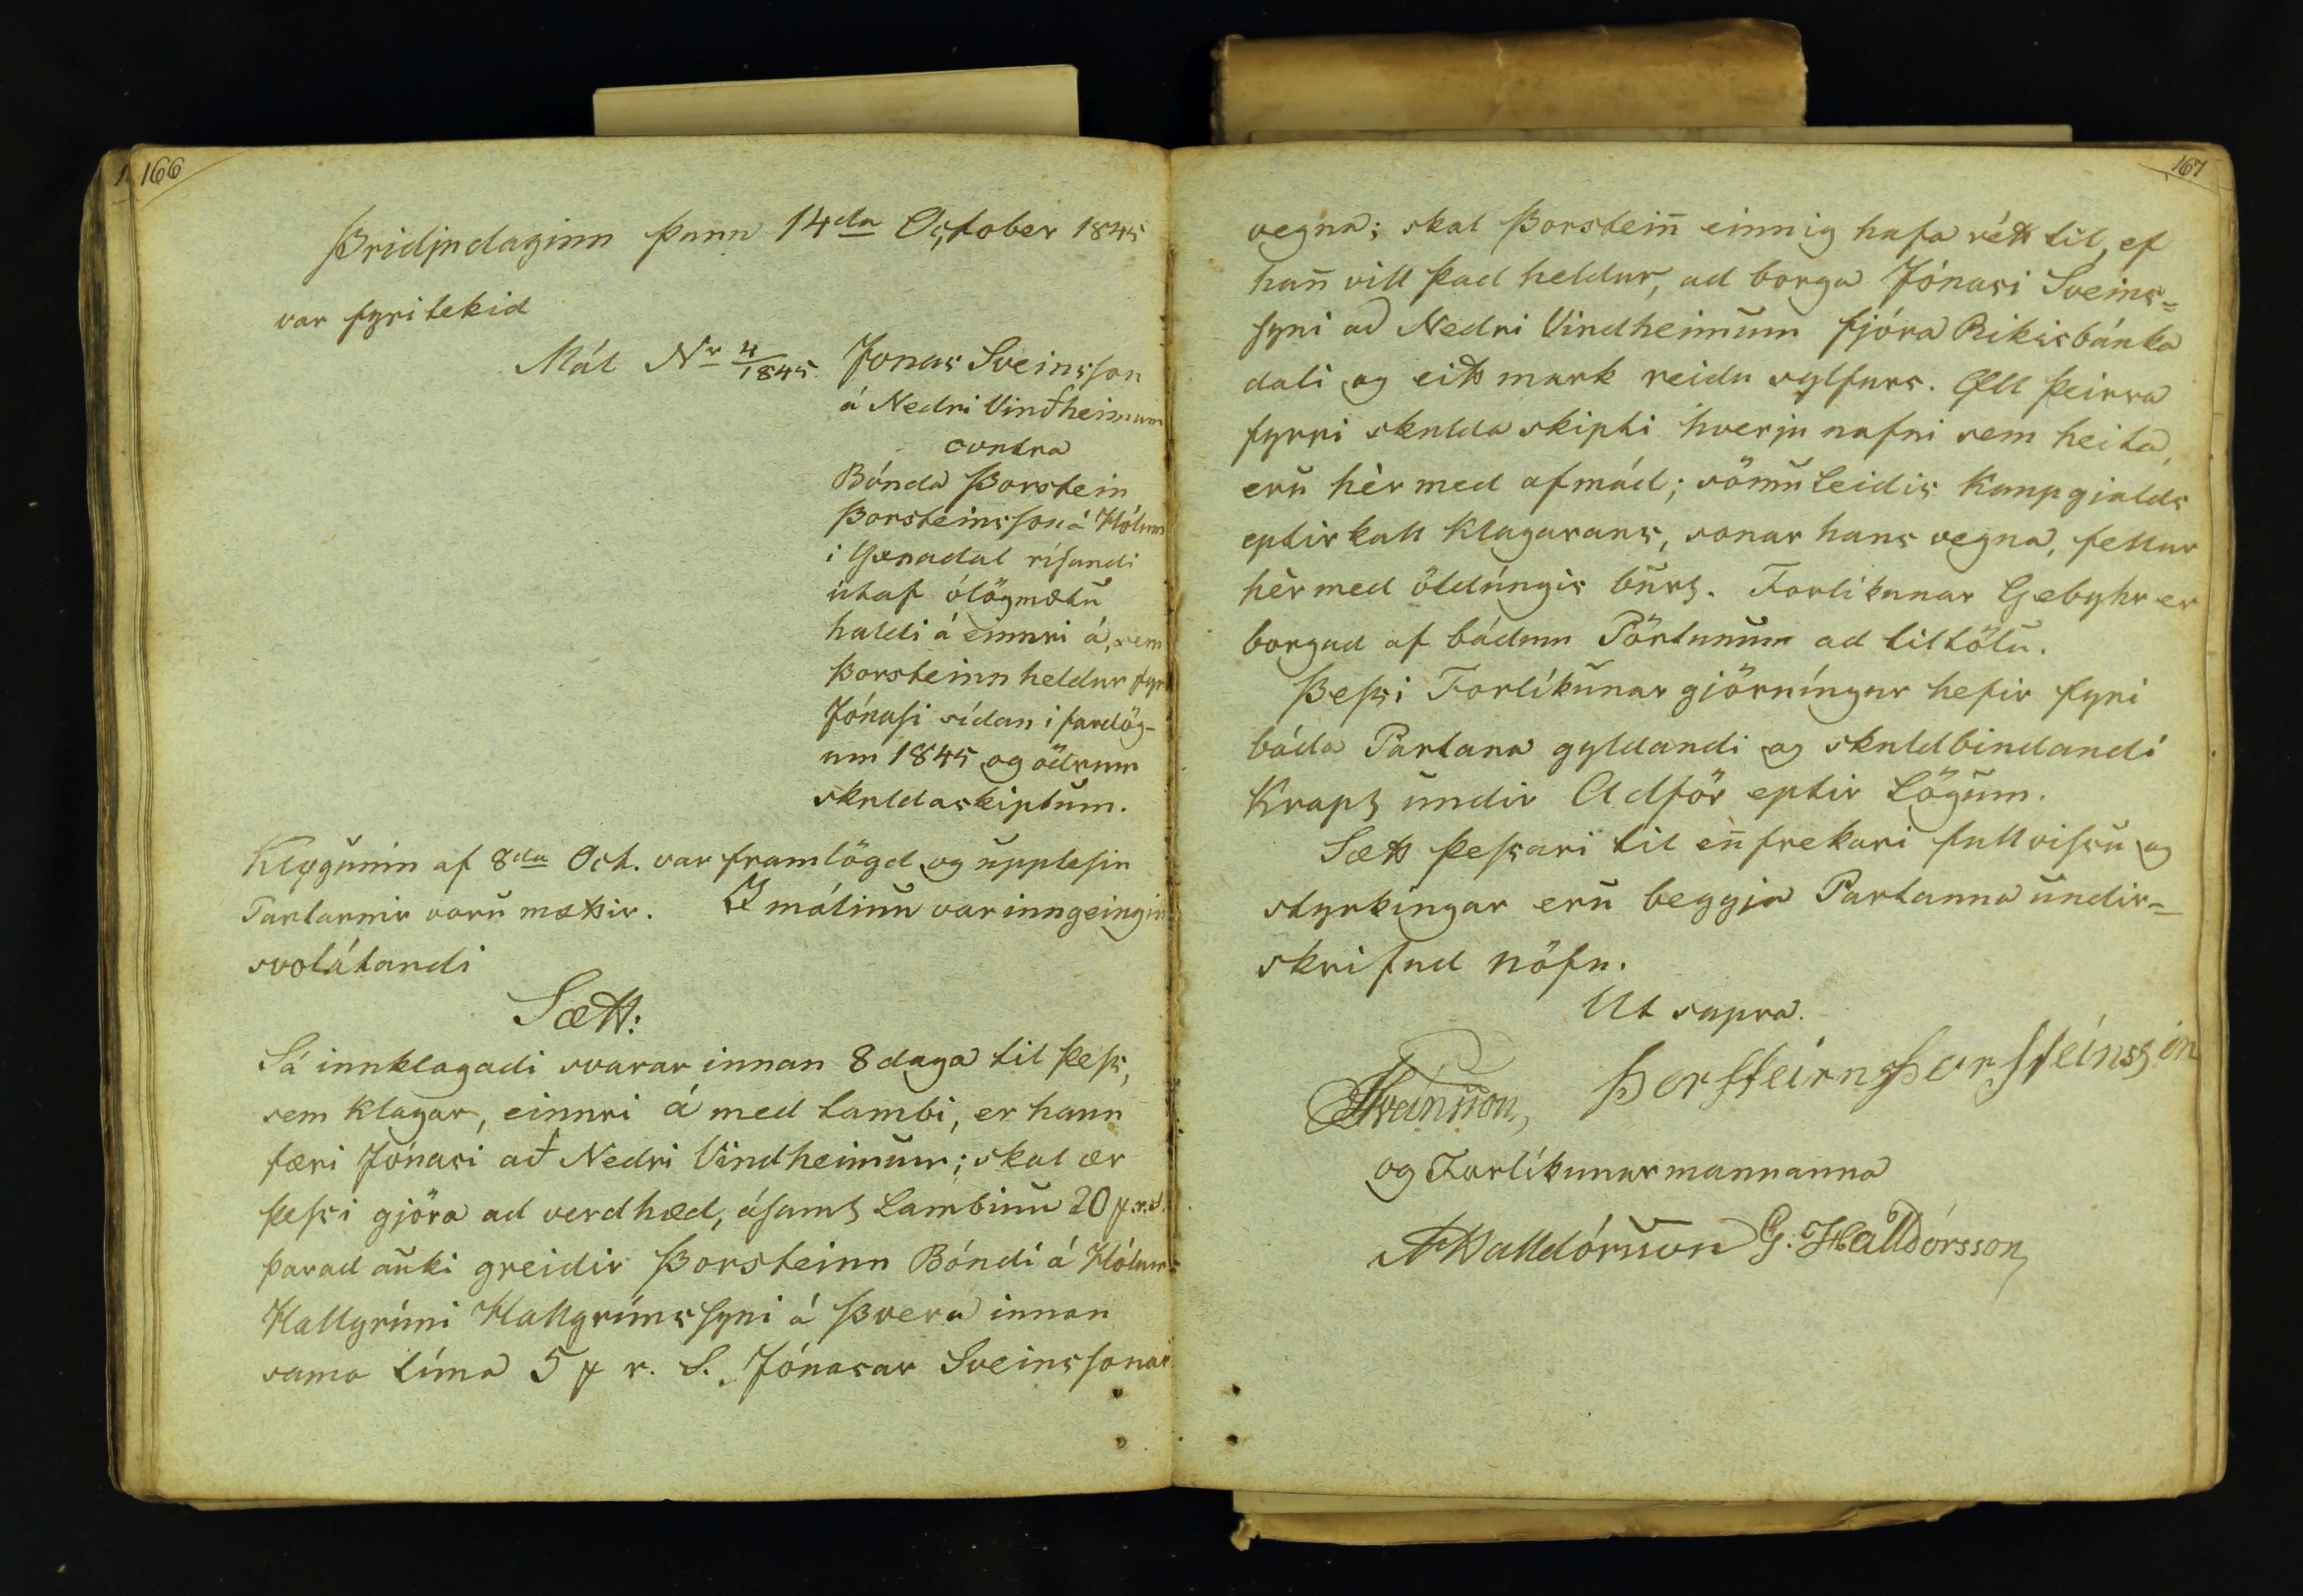 166
Þridjudaginn þann 14da October 1845
var fyritekid
Mál Nr 4/1845. Jonas Sveinsson
á Nedri Vindheimum
contra
Bónda Þorstein
Þorsteinsson á Hólum
i Yxnadal rísandi
útaf ólögmætu
haldi á einnri á, sem
Þorsteinn heldur fyri
Jónasi sídan i fardög-
um 1845 og ödrum
skuldaskiptum.
Klögunin af 8da Oct. var framlögd og upplesin
Partarnir voru mættir. I málinu var inngeingin
svolátandi
Sætt:
Sá innklagadi svarar innan 8 daga til þess,
sem klagar, einnri á med lambi, er hann
færi Jónasi að Nedri Vindheimum; skal ær
þessi gjöra ad verdhæd, ásamt Lambinu 20 # r.s.
þarad auki greidir Þorsteinn Bóndi á Hólum
Hallgrími Hallgrímssyni á Þvera innan
sama tíma 5 # r. S. Jónasar Sveinssonar
167
vegna; skal Þorstein̄ einnig hafa rétt til, ef
han̄ vill þad heldur, ad borga Jónasi Sveins=
syni að Nedri Vindheimum fjóra Rikisbánka
dali og eitt mark reidu sylfurs. Öll þeirra
fyrri skulda skipti hverju nafni sem heita,
eru hèr med afmád; sömuleidis Kaupgjalds
eptirkall Klagarans, sonar hans vegna, fellur
hèr med öldúngis burt. Forlíkunar Gebyhr er
borgad af bádum Pörtunum ad tiltölu.
Þessi Forlíkunar gjörníngur hefir fyri
báda Partana gyldandi og skuldbindandi
Krapt undir Adför eptir Lögum.
Sætt þessari til en̄ frekari fullvissu og
styrkingar eru beggja Partanna undir=
skrifud nöfn.
Ut supra.
JSveinsson, Þorsteirn Þorsteinsson
og Forlíkunarmannanna
Halldórsson G. Halldórsson